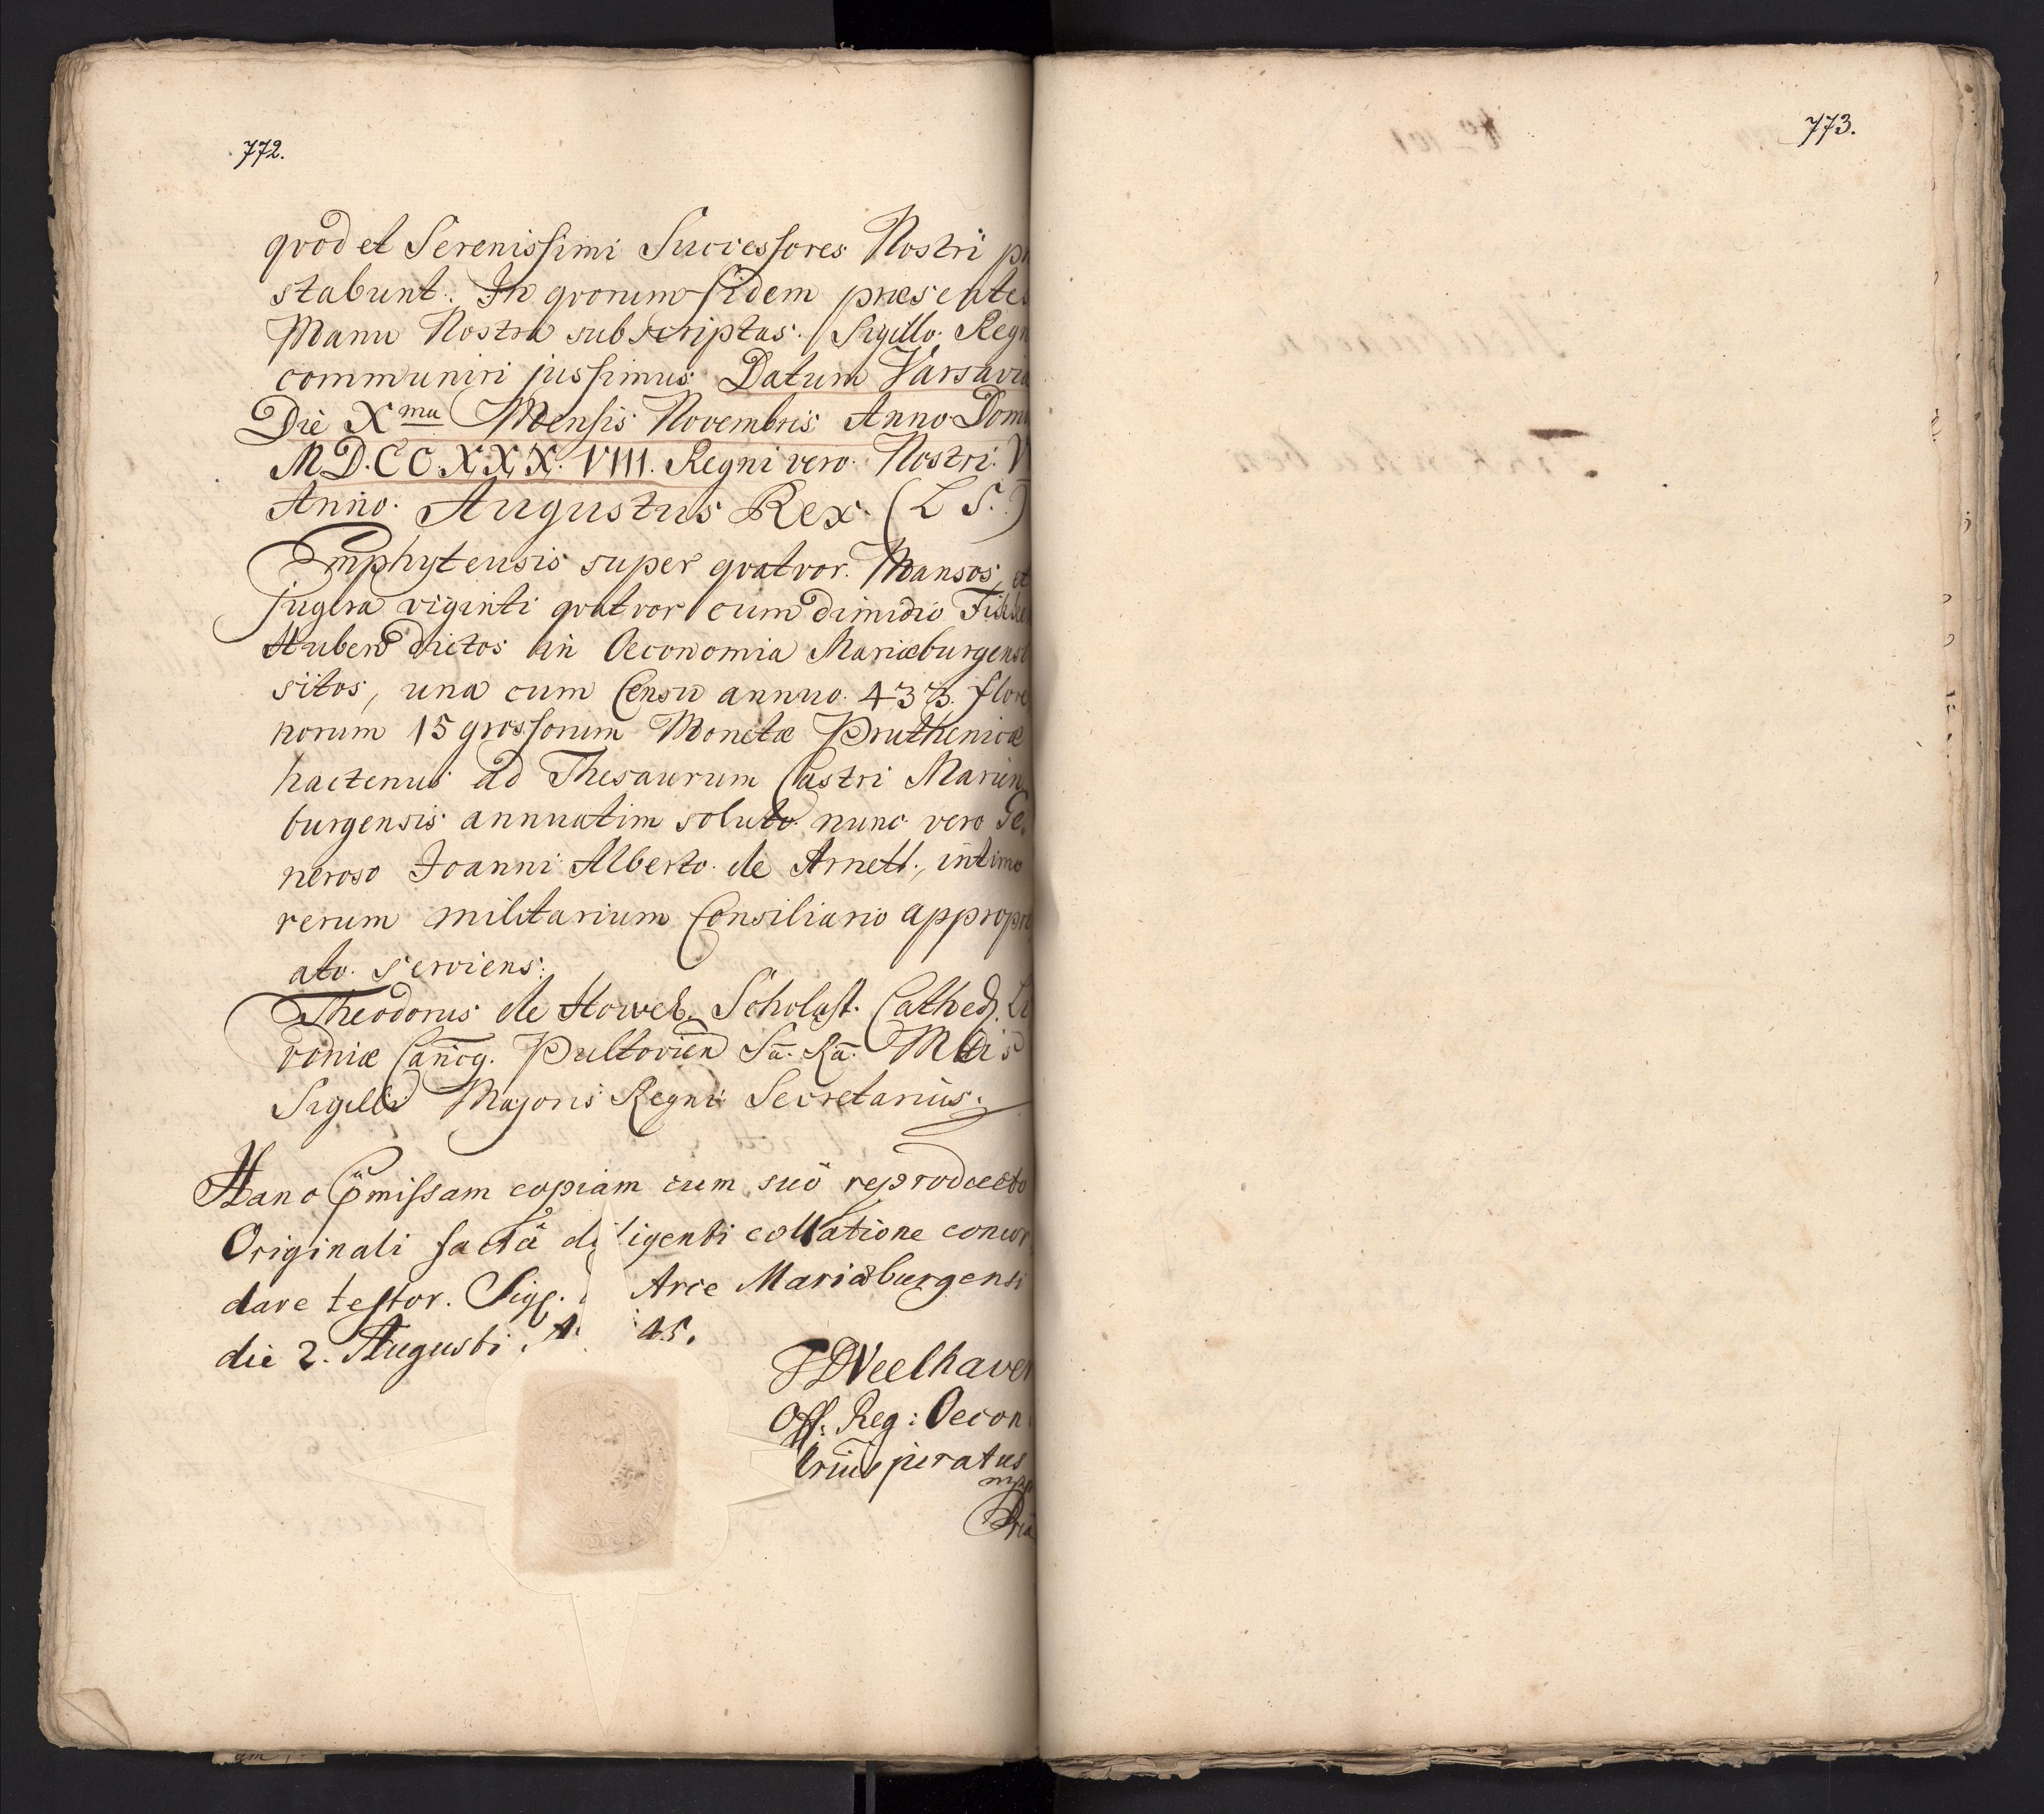 772.
qvod et Serenissimi Successores Nostri
stabunt. In qvorum fidem præsentes
Manu Nostra subscriptas. Sigillo Regn
communiri jussimus Datum Varsavia
Die Xma Mensis Novembris Anno Domi
M.D.CC.XXX.VIII. Regni vero Nostri V
Anno. Augustus Rex. (L S.)
Emphyteusis super qvatvor Mansos, et
jugera viginti qvatvor cum dimidio
Huben dictos in Oeconomia Mariæburgensi
sitos, una cum Censu annuo 433 flore
norum 15 grossorum Monetæ Pruthenicæ
hactenus ad Thesaurum Castri Marien
burgensis annuatim soluto nunc vero Ge
neroso Joanni Alberto de Arnett, intimo
rerum militarium Consiliario appropri
ato. serviens.
Theodorus de Scholast. Cathed. Li
voniæ Pultovien Sā. Rā. Mtis
Sigilli Majoris Regni Secretarius.
Hanc p̃missam copiam cum suo reproducto
Originali factâ diligenti collatione concor
dare testor. Sig. Arce Mariæburgensi
die 2. Augusti. A 45.
Off: Reg: Oecon
juratus
mpp
773.